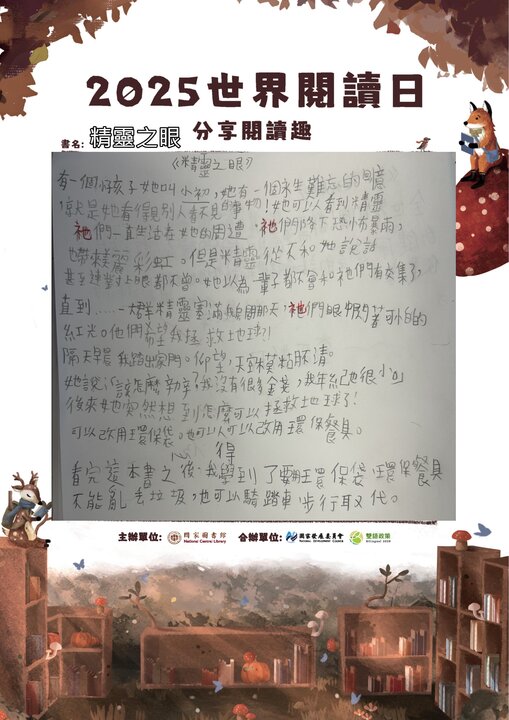 2025世界閱讀日
分享閱讀趣
書名: 精靈之眼
《精靈之眼》
有一個女孩子她叫小初,她有一個永生難忘的回憶
就是她看得見別人看不見的事物!她可以看到精靈
祂們一直生活在她的周遭,祂們降下恐怖暴雨,
也帶來美麗彩虹。但是精靈從不和她說話
甚至連對上眼都不曾。她以為一輩子都不會和祂們有交集了,
直到……一大群精靈塞滿房間那天,祂們眼中閃著可怕的
紅光。他們希望我拯救地球?!
隔天早晨我踏出家門。仰望,天空模糊不清。
她說:「該怎麼辦我沒有很多金錢,我年紀也很小」
後來她突然想到怎麼可以拯救地球了!
可以改用環保袋。也可以改用環保餐具。
心得
看完這本書之後,我學到了要用環保袋、環保餐具
不能亂丟垃圾,也可以騎踏車步行取代。
主辦單位: 國家圖書館 National Central Library 合辦單位: 國家發展委員會 NATIONAL DEVELOPMENT COUNCIL 雙語政策 Bilingual 2030